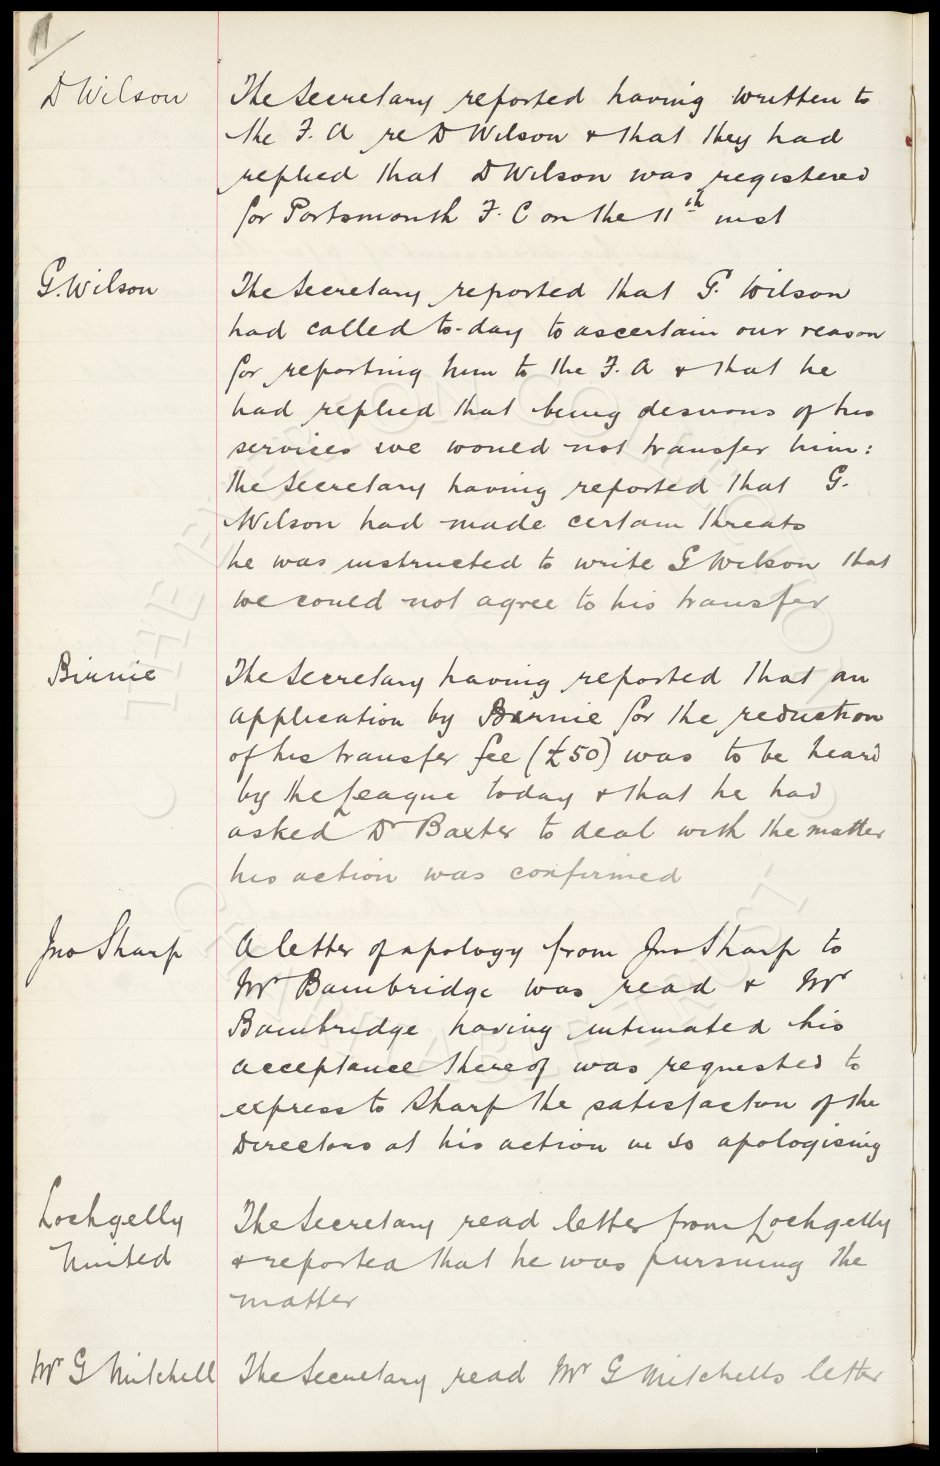 11
D Wilson
The Secretary reported having written to
the F. A re D Wilson & that they had
replied that D Wilson was registered
for Portsmouth F. C on the 11th inst
G. Wilson
The Secretary reported that G. Wilson
had called to-day to ascertain our reason
for reporting him to the F. A & that he
had replied that being desirous of his
services we would not transfer him:
the Secretary having reported that G.
Wilson had made certain threats
he was instructed to write G Wilson that
we could not agree to his transfer
Birnie
The Secretary having reported that an
application by Birnie for the reduction
of his transfer fee (£50) was to be heard
by the League today & that he had
asked Dr Baxter to deal with the matter
his action was confirmed
Jno Sharp
A letter of apology from Jno Sharp to
Mr Bainbridge was read & Mr
Bainbridge having intimated his
acceptance thereof was requested to
express to Sharp the satisfaction of the
Directors at his action in so apologising
Lochgelly
United
The Secretary read letter from Lochgelly
& reported that he was pursuing the
matter
Mr G Mitchell
The Secretary read Mr G Mitchells letter